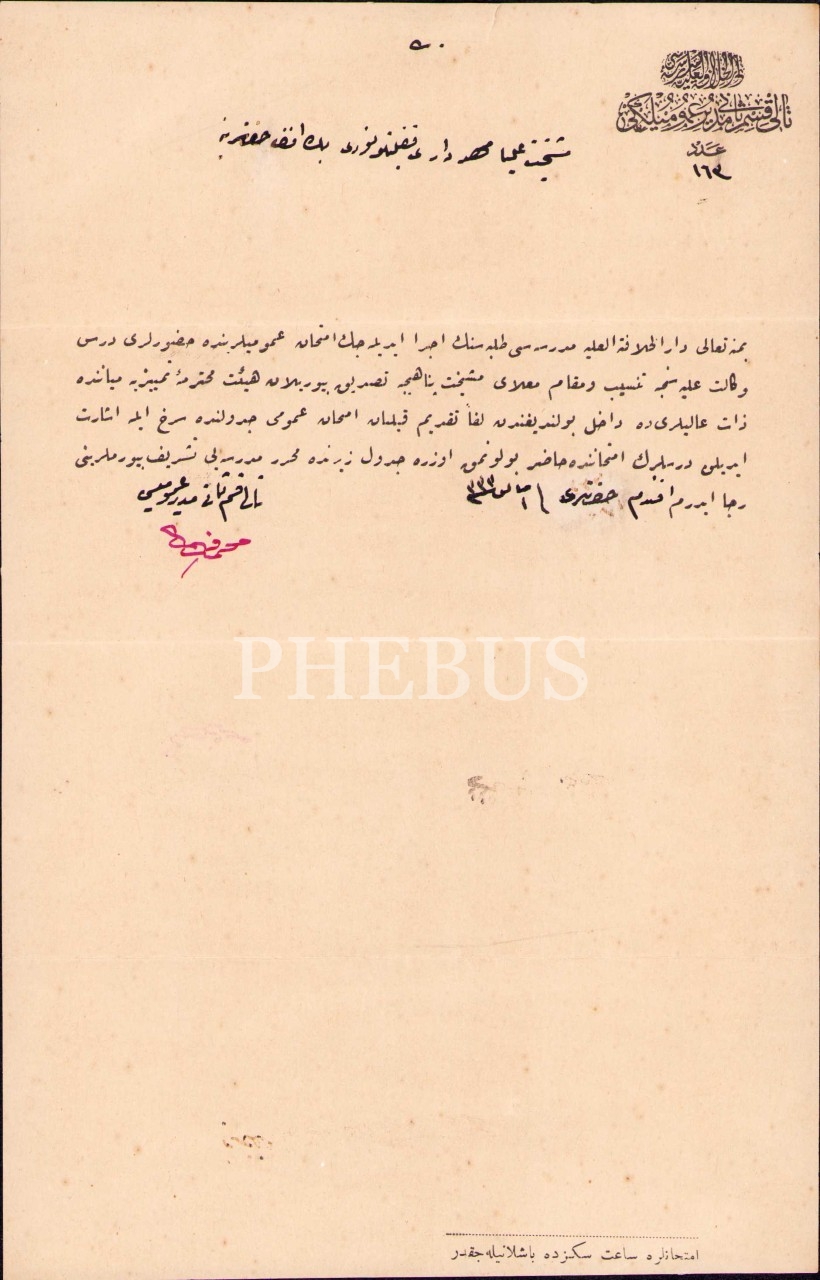 دار الخلافة العلیه مدرسه سی
تالی قسم ثانی مدیر عمومیلکی
عدد
١٦٣
مشیخت علیا مهرداری فضیلتلو نوری بك افندی حضرتلرینه
بمنه تعالی دار الخلافة العلیه مدرسه سی طلبه سنك اجرا ایدیله جك امتحان عمومیلرینده حضورلری درس
وکالت علیه سنجه تنسیب و مقام معلای مشیخت پناهیجه تصدیق بیوریلان هیئت محترمهٔ ممیزیه میاننده
ذات عالیلری ده داخل بولندیغندن لفاً تقدیم قیلنان امتحان عمومی جدولنده سرخ ایله اشارت
ایدیلن درسلرك امتحاننده حاضر بولونمق اوزره جدول زیرنده محرر مدرسه یی تشریف بیورملرینی
رجا ایدرم افندم حضرتلری مایس ٣٣٣
تالی قسم ثانی مدیر عمومیسی
PHEBUS
امتحانلره ساعت سکزده باشلانیله جقدر